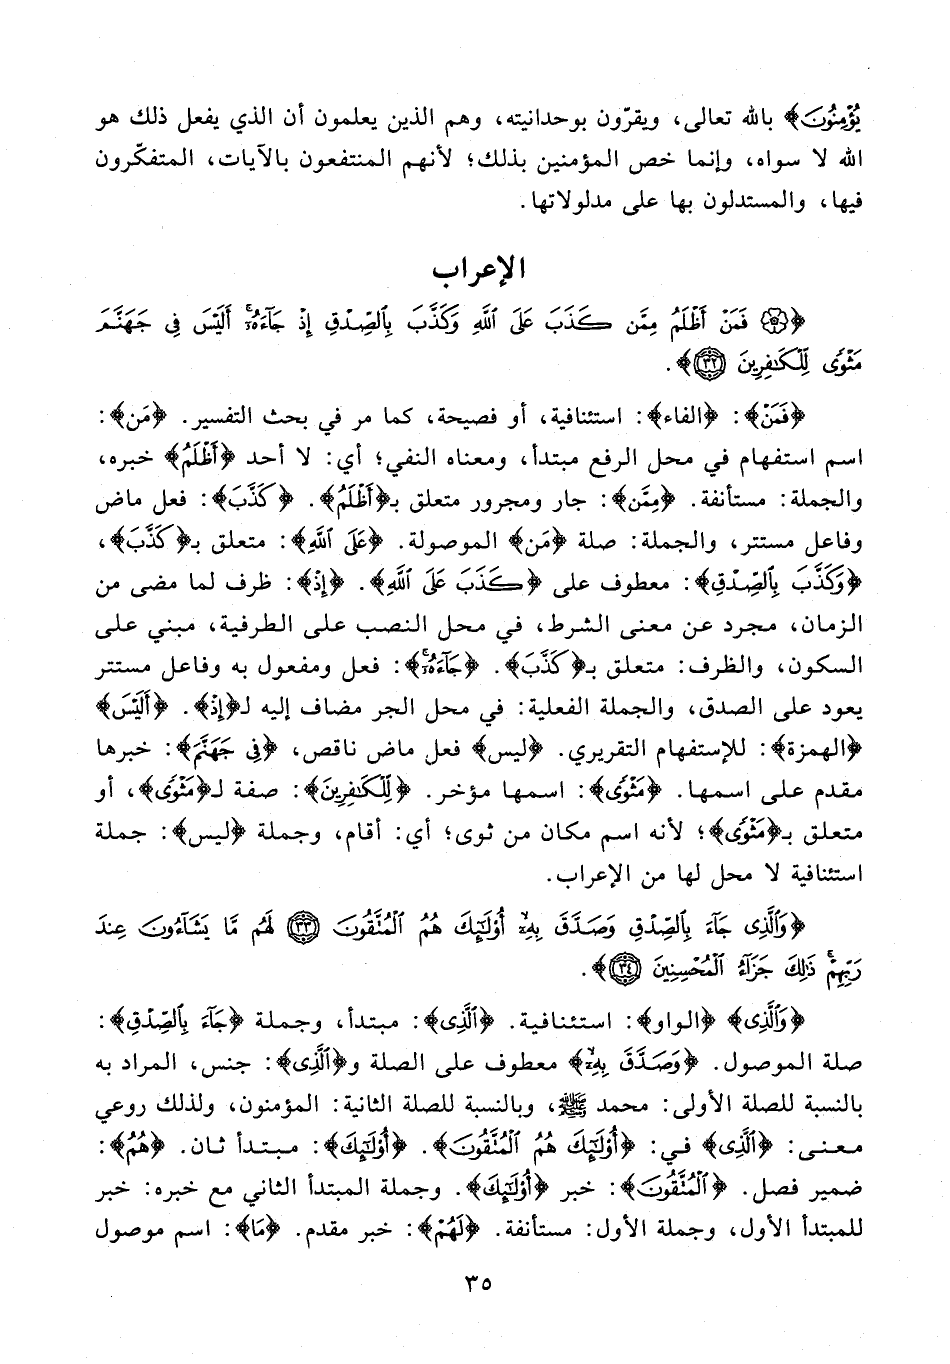 يُؤْمِنُونَ﴾ بالله تعالى، ويقرّون بوحدانيته، وهم الذين يعلمون أن الذي يفعل ذلك هو
الله لا سواه، وإنما خص المؤمنين بذلك؛ لأنهم المنتفعون بالآيات، المتفكّرون
فيها، والمستدلون بها على مدلولاتها.
الإعراب
﴿۞ فَمَنْ أَظْلَمُ مِمَّن كَذَبَ عَلَى ٱللَّهِ وَكَذَّبَ بِٱلصِّدْقِ إِذْ جَآءَهُۥٓ أَلَيْسَ فِى جَهَنَّمَ
مَثْوًى لِّلْكَٰفِرِينَ ٣٢﴾.
﴿فَمَنْ﴾: ﴿الفاء﴾: استئنافية، أو فصيحة، كما مر في بحث التفسير. ﴿مَن﴾:
اسم استفهام في محل الرفع مبتدأ، ومعناه النفي؛ أي: لا أحد ﴿أَظْلَمُ﴾ خبره،
والجملة: مستأنفة. ﴿مِمَّن﴾: جار ومجرور متعلق بـ﴿أَظْلَمُ﴾. ﴿كَذَبَ﴾: فعل ماض
وفاعل مستتر، والجملة: صلة ﴿مَن﴾ الموصولة. ﴿عَلَى ٱللَّهِ﴾: متعلق بـ﴿كَذَبَ﴾،
﴿وَكَذَّبَ بِٱلصِّدْقِ﴾: معطوف على ﴿كَذَبَ عَلَى ٱللَّهِ﴾. ﴿إِذْ﴾: ظرف لما مضى من
الزمان، مجرد عن معنى الشرط، في محل النصب على الظرفية، مبني على
السكون، والظرف: متعلق بـ﴿كَذَّبَ﴾. ﴿جَآءَهُۥٓ﴾: فعل ومفعول به وفاعل مستتر
يعود على الصدق، والجملة الفعلية: في محل الجر مضاف إليه لـ﴿إِذْ﴾. ﴿أَلَيْسَ﴾
﴿الهمزة﴾: للإستفهام التقريري. ﴿ليس﴾ فعل ماض ناقص، ﴿فِى جَهَنَّمَ﴾: خبرها
مقدم على اسمها. ﴿مَثْوًى﴾: اسمها مؤخر. ﴿لِّلْكَٰفِرِينَ﴾: صفة لـ﴿مَثْوًى﴾، أو
متعلق بـ﴿مَثْوًى﴾؛ لأنه اسم مكان من ثوى؛ أي: أقام، وجملة ﴿ليس﴾: جملة
استئنافية لا محل لها من الإعراب.
﴿وَٱلَّذِى جَآءَ بِٱلصِّدْقِ وَصَدَّقَ بِهِۦٓ أُو۟لَٰٓئِكَ هُمُ ٱلْمُتَّقُونَ ٣٣ لَهُم مَّا يَشَآءُونَ عِندَ
رَبِّهِمْ ذَٰلِكَ جَزَآءُ ٱلْمُحْسِنِينَ ٣٤﴾.
﴿وَٱلَّذِى﴾ ﴿الواو﴾: استئنافية. ﴿ٱلَّذِى﴾: مبتدأ، وجملة ﴿جَآءَ بِٱلصِّدْقِ﴾:
صلة الموصول. ﴿وَصَدَّقَ بِهِۦٓ﴾ معطوف على الصلة و﴿ٱلَّذِى﴾: جنس، المراد به
بالنسبة للصلة الأولى: محمد ﷺ، وبالنسبة للصلة الثانية: المؤمنون، ولذلك روعي
معنى: ﴿ٱلَّذِى﴾ في: ﴿أُو۟لَٰٓئِكَ هُمُ ٱلْمُتَّقُونَ﴾. ﴿أُو۟لَٰٓئِكَ﴾: مبتدأ ثان. ﴿هُمُ﴾:
ضمير فصل. ﴿ٱلْمُتَّقُونَ﴾: خبر ﴿أُو۟لَٰٓئِكَ﴾. وجملة المبتدأ الثاني مع خبره: خبر
للمبتدأ الأول، وجملة الأول: مستأنفة. ﴿لَهُمْ﴾: خبر مقدم. ﴿مَا﴾: اسم موصول
٣٥